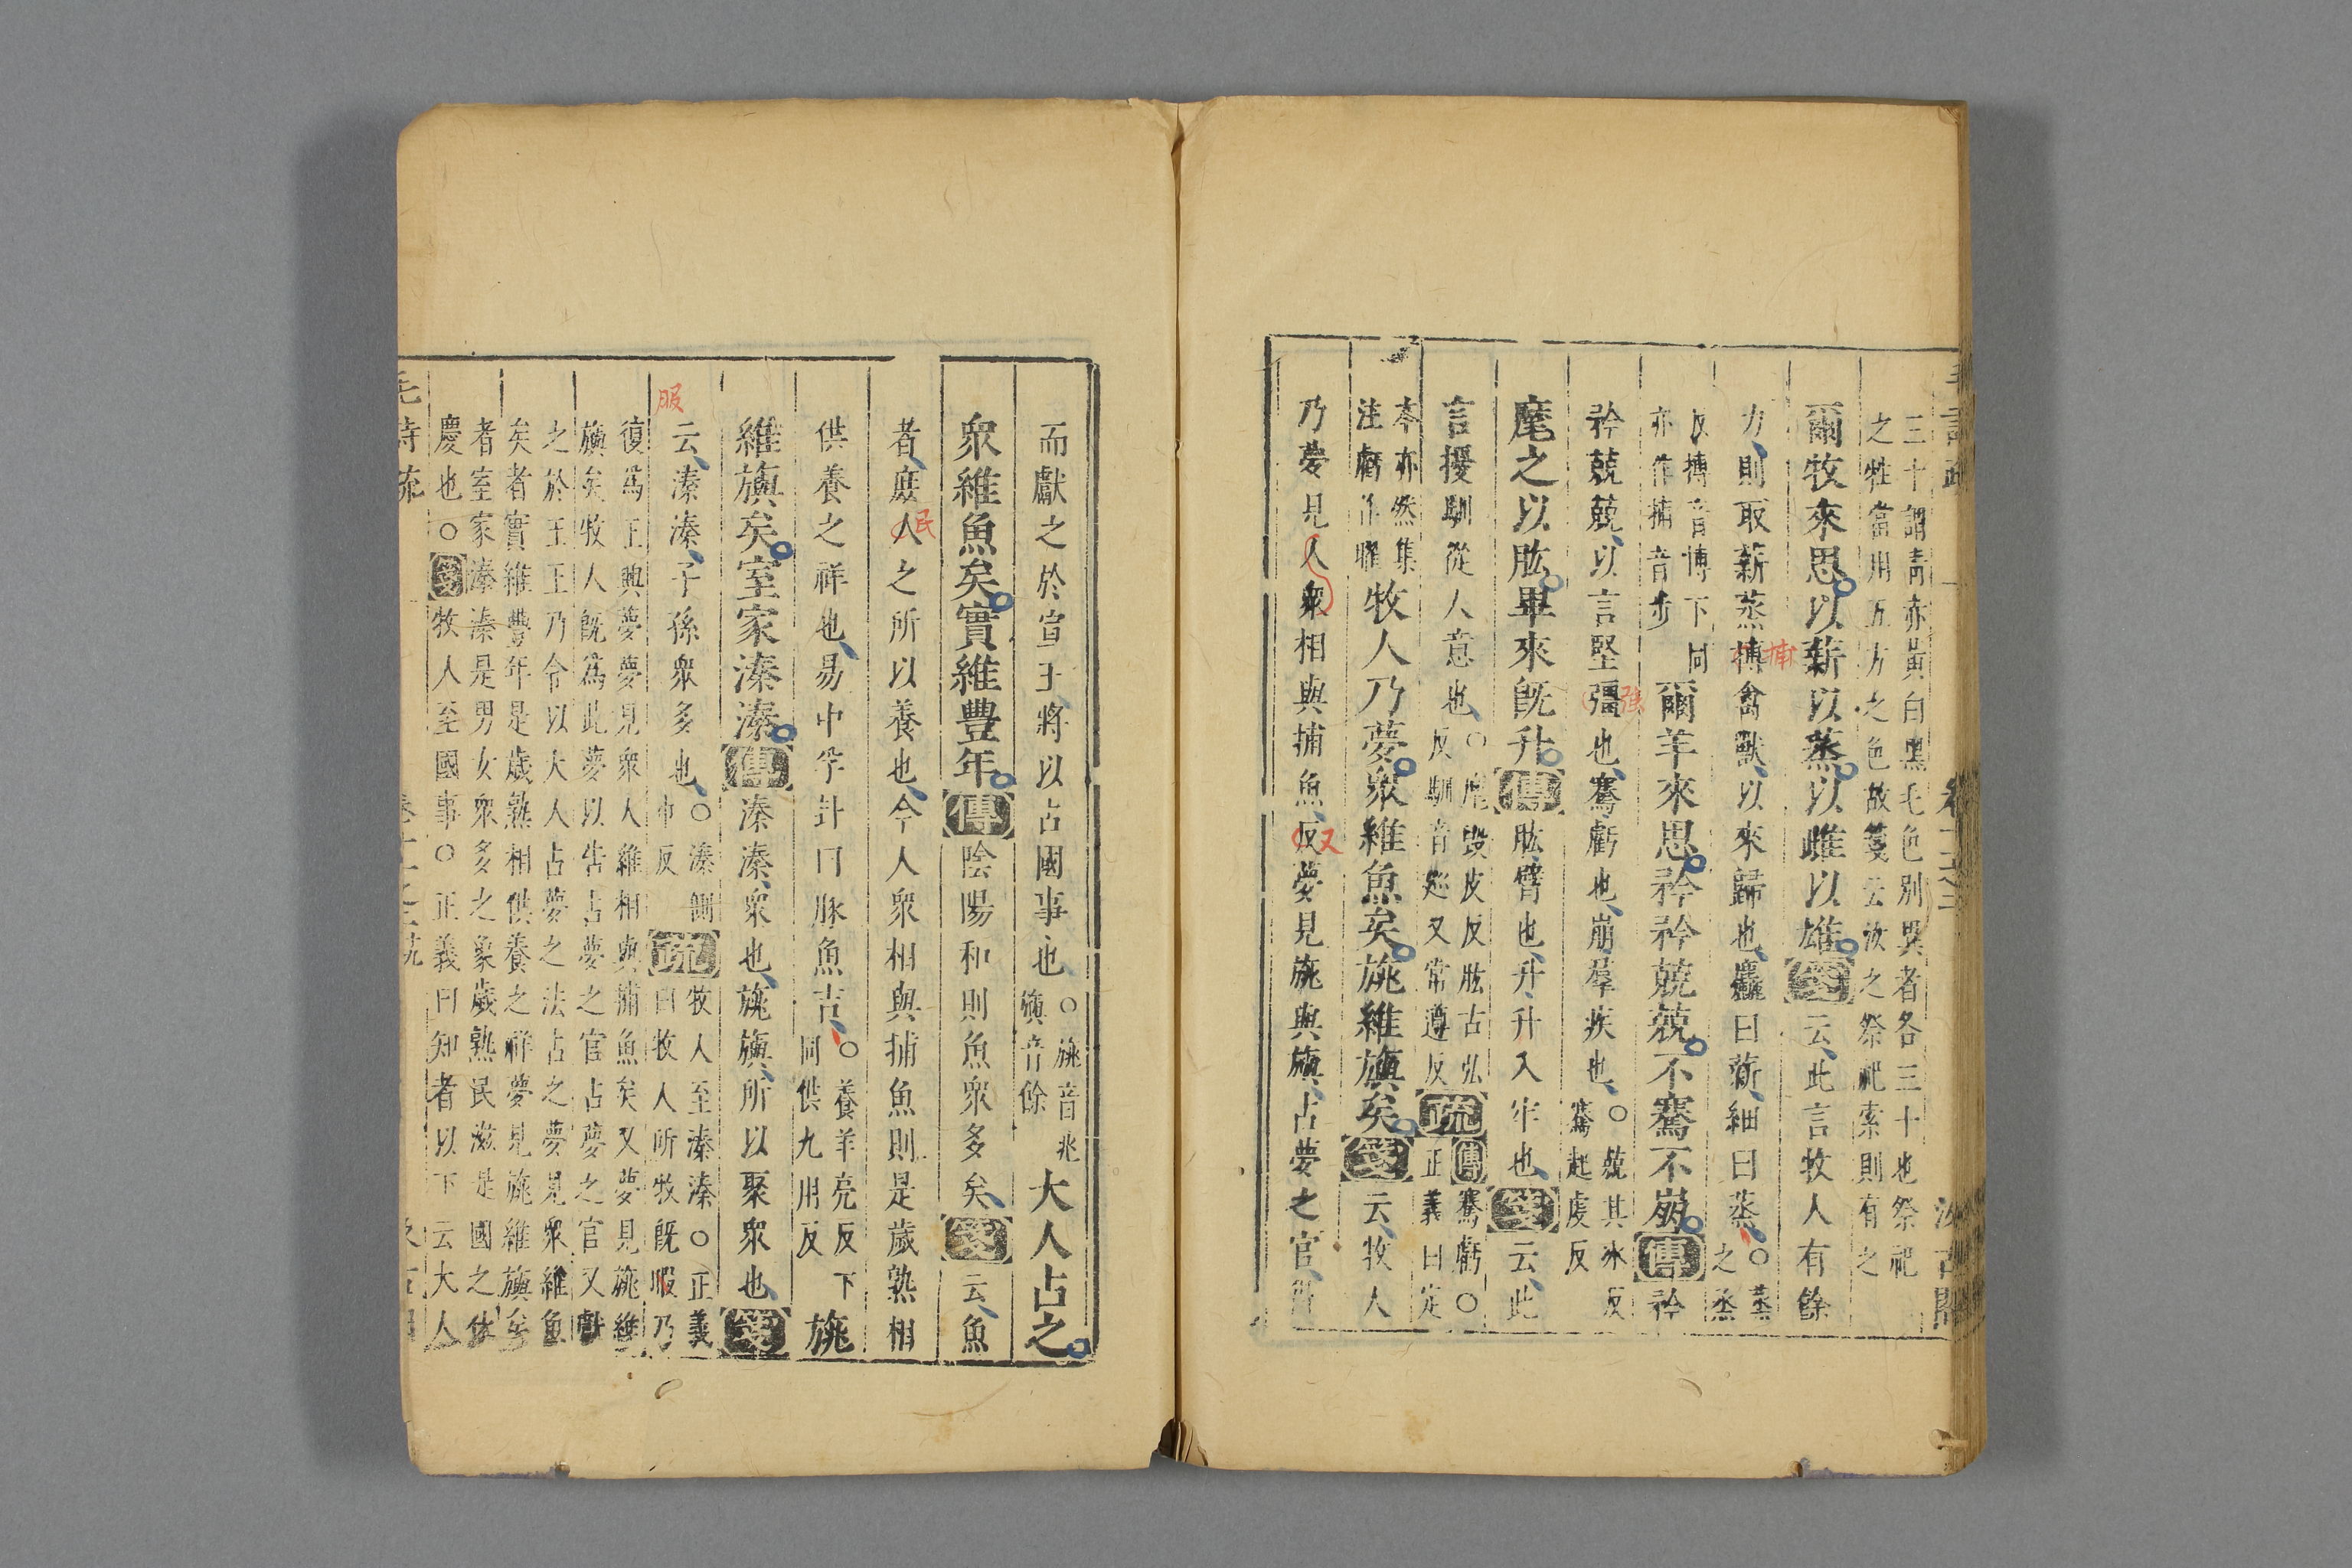 三十謂靑亦黃白黑毛色別異者各三十也祭祀
之牲當用五方之色故箋云汝之祭祀索則有之
爾牧來思以薪以蒸以雌以雄箋云此言牧人有餘
力則取薪蒸搏禽獸以來歸也麤曰薪細曰蒸○蒸
之烝
捕
反搏音博下同
亦作捕音步
爾羊來思矜矜兢兢不騫不崩傳矜
矜兢兢以言堅彊也騫虧也崩羣疾也○兢其冰反
騫起虔反
强
麾之以肱畢來旣升傳肱臂也升升入牢也箋云此
言擾馴從人意也○麾毀皮反肱古弘
反馴音廵又常遵反
疏傳騫虧○
正義曰定
本亦然集
注虧作曜
牧人乃夢衆維魚矣旐維旟矣箋云牧人
乃夢見人衆相與捕魚反夢見旐與旟占夢之官得
又
而獻之於宣王將以占國事也○旐音兆
旟音餘
大人占之
衆維魚矣實維豐年傳陰陽和則魚衆多矣箋云魚
者庶人之所以養也今人衆相與捕魚則是歲熟相
民
供養之祥也易中孚卦曰豚魚吉○養羊亮反下
同供九用反
旐
維旟矣室家溱溱傳溱溱衆也旐旟所以聚衆也箋
云溱溱子孫衆多也○溱側
巾反
疏牧人至溱溱○正義
曰牧人所牧旣暇乃
服
復爲王興夢夢見衆人維相與捕魚矣又夢見旐維
旟矣牧人旣爲此夢以告占夢之官占夢之官又獻
之於王王乃令以大人占夢之法占之夢見衆維魚
矣者實維豐年是歲熟相供養之祥夢見旐維旟矣
者室家溱溱是男女衆多之象歲熟民滋是國之休
慶也○箋牧人至國事○正義曰知者以下云大人
毛詩疏